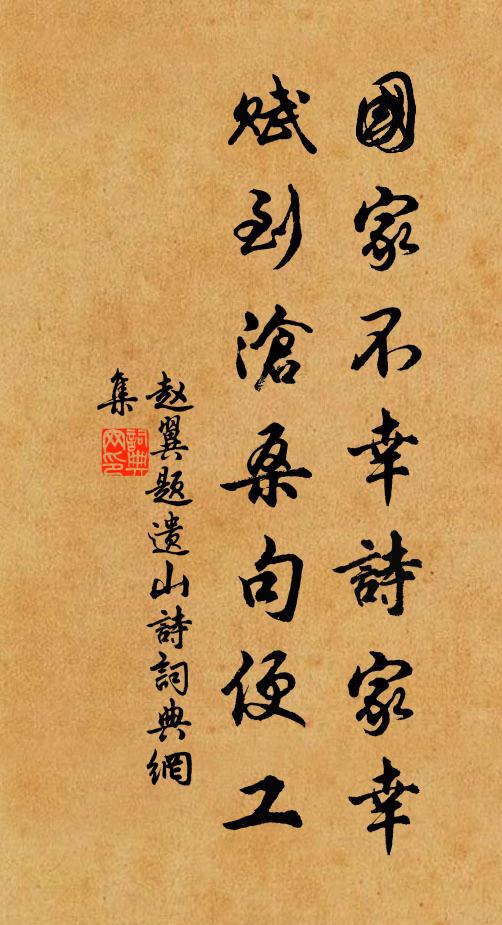 國家不幸詩家幸
賦到滄桑句便工
赵翼题遗山詩詞典網
集
詞典網印